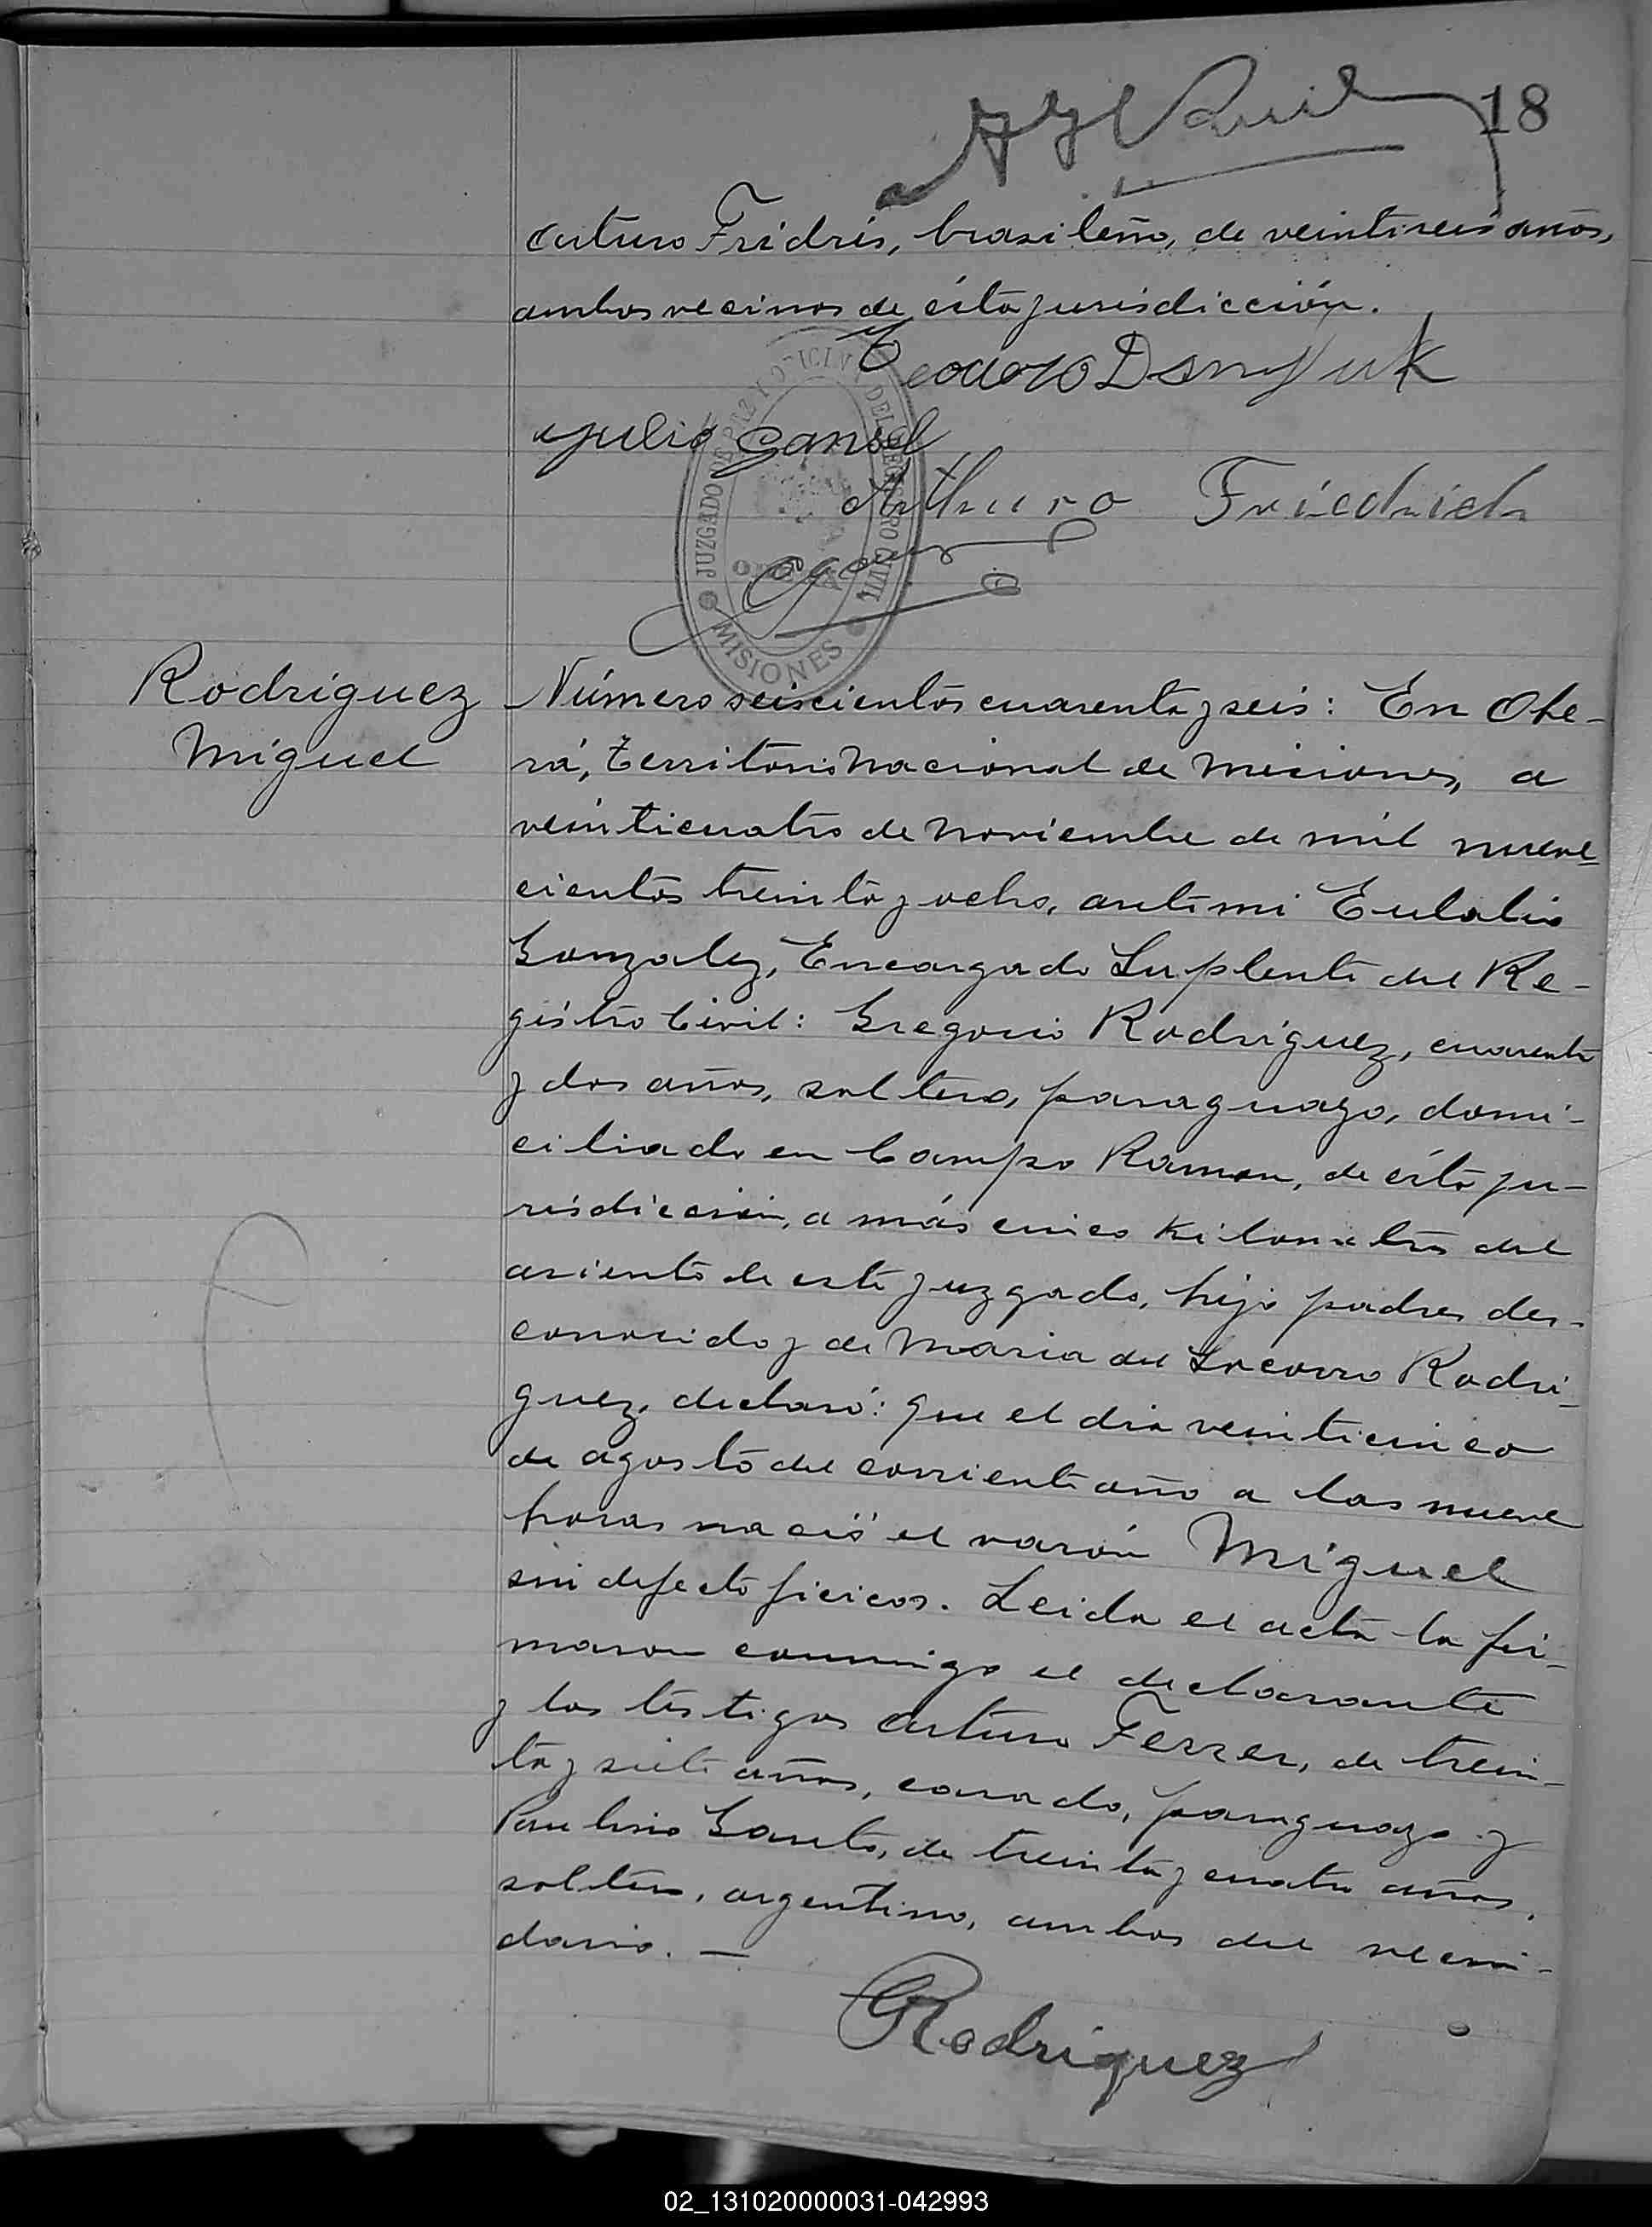 18
Arturo Fridris, brasileño, de veintiseis años,
ambos vecinos de ésta jurisdicción.
Teodoro
Julio
Arthuro Friedrich
JUZGADO DE PAZ Y OFICINA DEL REGISTRO CIVIL
MISIONES
Rodriguez
Miguel
Número seiscientos cuarenta y seis: En Obe-
rá, Territorio Nacional de Misiones, a
veinticuatro de Noviembre de mil nueve-
cientos treinta y ocho, ante mi Eulalio
Gonzalez, Encargado Suplente del Re-
gistro Civil: Gregorio Rodriguez, cuarenta
y dos años, soltero, paraguayo, domi-
ciliado en Campo Ramon, de ésta ju-
risdicción, a más cinco kilometros del
asiento de este juzgado, hijo padres des-
conocido y de Maria del Socorro Rodri-
guez, declaró: que el dia veinticinco
de agosto del corriente año a las nueve
horas nació el varón Miguel
sin defecto ficicos. Leida el acta la fir-
maron conmigo el declarante
y los testigos Arturo Ferrer, de trein-
ta y siete años, casado, paraguayo y
Paulino de treinta y cuatro años,
soltero, argentino, ambos del vecin-
dario. —
GRodriguez
02_131020000031-042993